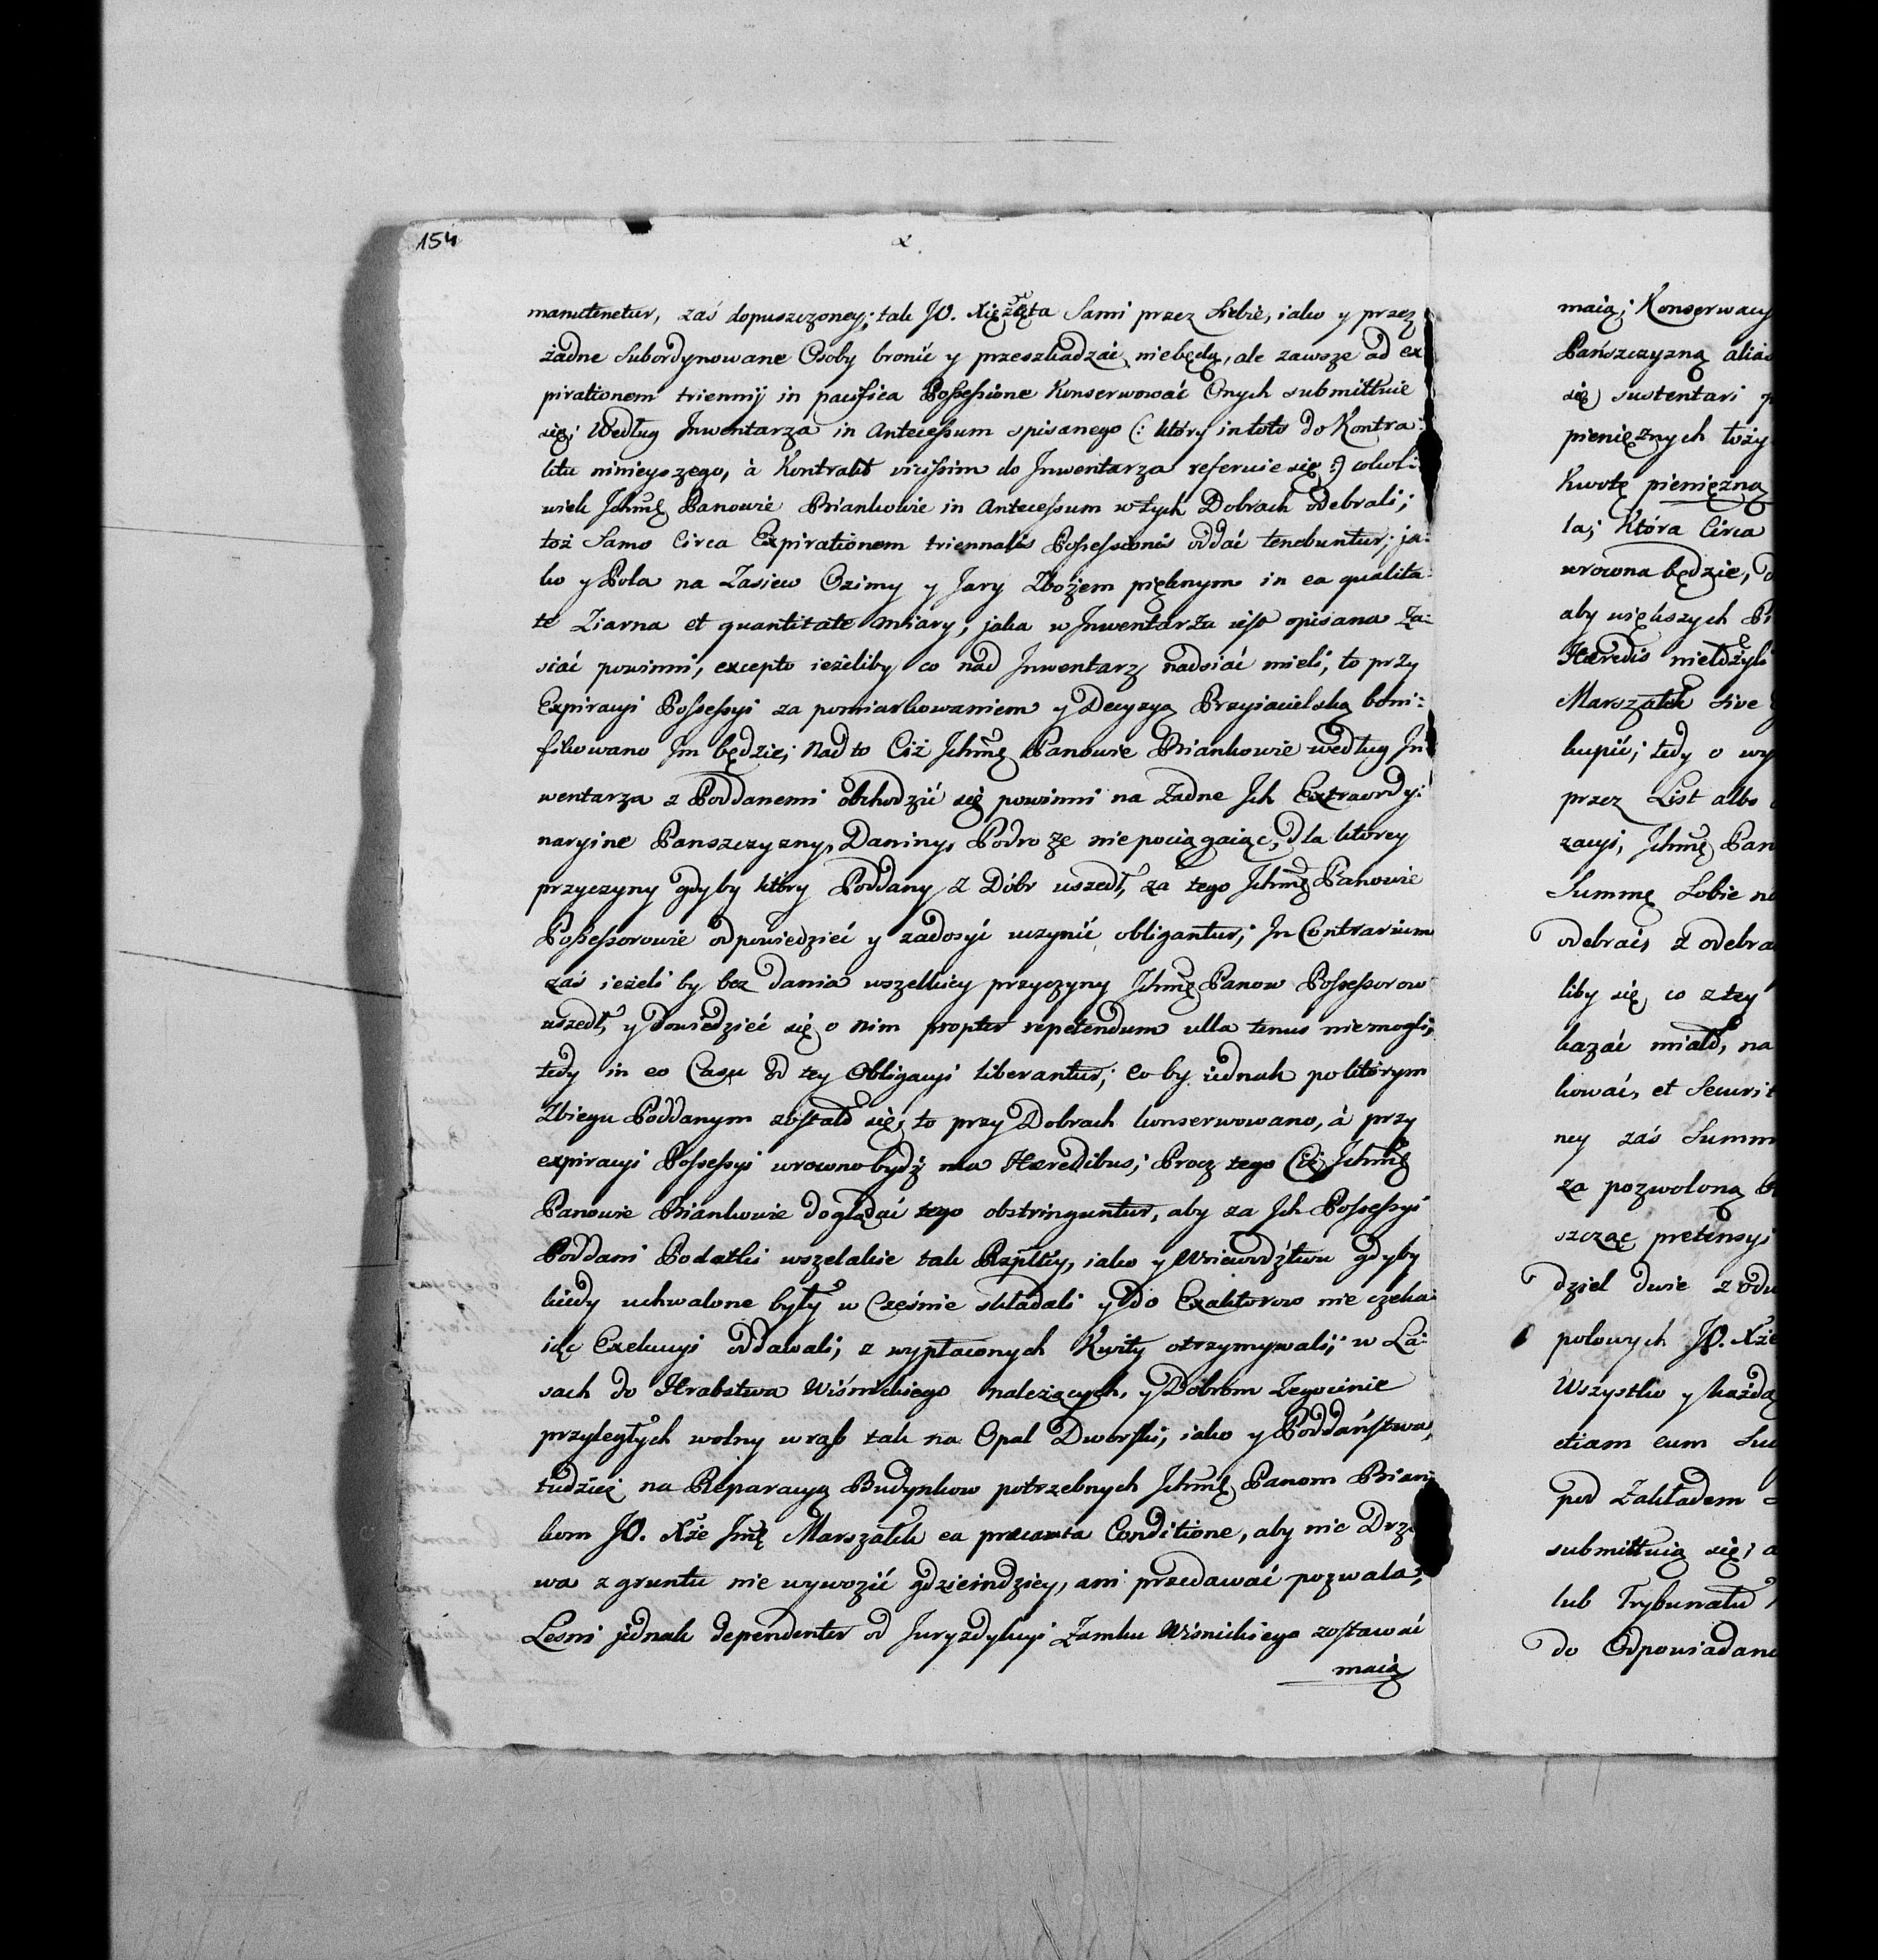 154
manutenetur, zaś dopuszczoney; tak JO. Xiężęta Sami przez Siebie, iako y przez
żadne Subordynowane Osoby bronić y przeszkadzać niebędą, ale zawsze ad ex
pirationem triennij in pacifica Possessione Konserwować Onych submittuie
się; Według Jnwentarza in Antecessum spisanego (: który in toto do Kontra:
ktu ninieyszego, à Kontrakt vicissim do Jnwentarza referuie się :) cokol:
wiek Jchmę Panowie Biankowie in Antecessum w tych Dobrach odebrali;
toż Samo Circa Expirationem triennalis Possessionis oddać tenebuntur; ja:
ko y Pola na Zasiew Ozimy y Jary Zbożem pięknym in ea qualita:
te Ziarna et quantitate miary, jaka w Jnwentarzu iest opisana Za:
siać powinni, excepto ieżeliby co nad Jnwentarz nadsiać mieli, to przy
Expiracyi Possessyi za pomiarkowaniem y Decyzyą Przyiacielską boni:
fikowano Jm będzie; Nad to Ciż Jchmę Panowie Biankowie według Jn
wentarza z Poddanemi obchodzić się powinni na Żadne Jch Extraordy:
naryine Panszczyzny, Daniny, Podroże nie pociągaiąc, dla którey
przyczyny gdyby który Poddany z Dóbr uszedł, za tego Jchmę Panowie
Possessorowie odpowiedzieć y zadosyć uczynić obligantur; Jn Contrarium
zaś ieżeli by bez dania wszelkiey przyczyny Jchmę Panow Possessorow
uszedł, y dowiedzieć się o nim propter repetendum ulla tenus niemogli,
tedy in eo Casu od tey Obligacyi liberantur; co by iednak po którym
Zbiegu Poddanym zostało się, to przy Dobrach konserwowano, à przy
expiracyi Possessyi wrocono bydź ma Hæredibus; Procz tego Ciż Jchmę
Panowie Biankowie doglądać tego obstringuntur, aby za Jch Possessyi
Poddani Podatki wszelakie tak Rzpltey, iako y Woiewodźtwu gdyby
kiedy uchwalone były w Cześnie składali y do Exaktorow nie czeka:
iąc Exekucyi oddawali, z wypłaconych Kwity otrzymywali; w La:
sach do Hrabstwa Wiśnickiego należących, y Dobrom Żegocinie
przyległych wolny wrąb tak na Opał Dworski, iako y Poddaństwa,
tudzież na Reparacyą Budynkow potrzebnych Jchmę Panom Bian:
kom JO. Xże Jmę Marszałek ea præcauta Conditione, aby nic Drze
wa z gruntu nie wywozić gdzieindziey, ani przedawać pozwala;
Lesni jednak dependenter od Juryzdykcyi Zamku Wisnickiego zostawać
maią
maią; Konserwacy
Pańszczyzną alias
się sustentari
pieniężnych
Kwotę pieniężną
la; Która Circa
wrocona będzie,
aby większych
Hæredis
Marszałek sive
kupić; tedy o wy
przez List albo
zacyi, Jchmę Pan
Summę Sobie na
odebrać, z odebra
liby się co z tey
kazać miało, na
kować, et Securit
ney zaś Summ
za pozwoloną
szcząc pretensyi
dziel dwie z
polowych JO. Xże
Wszystko y każdą
etiam cum
pod Zakładem
submittuią się,
lub Trybunału
do Odpowiadani